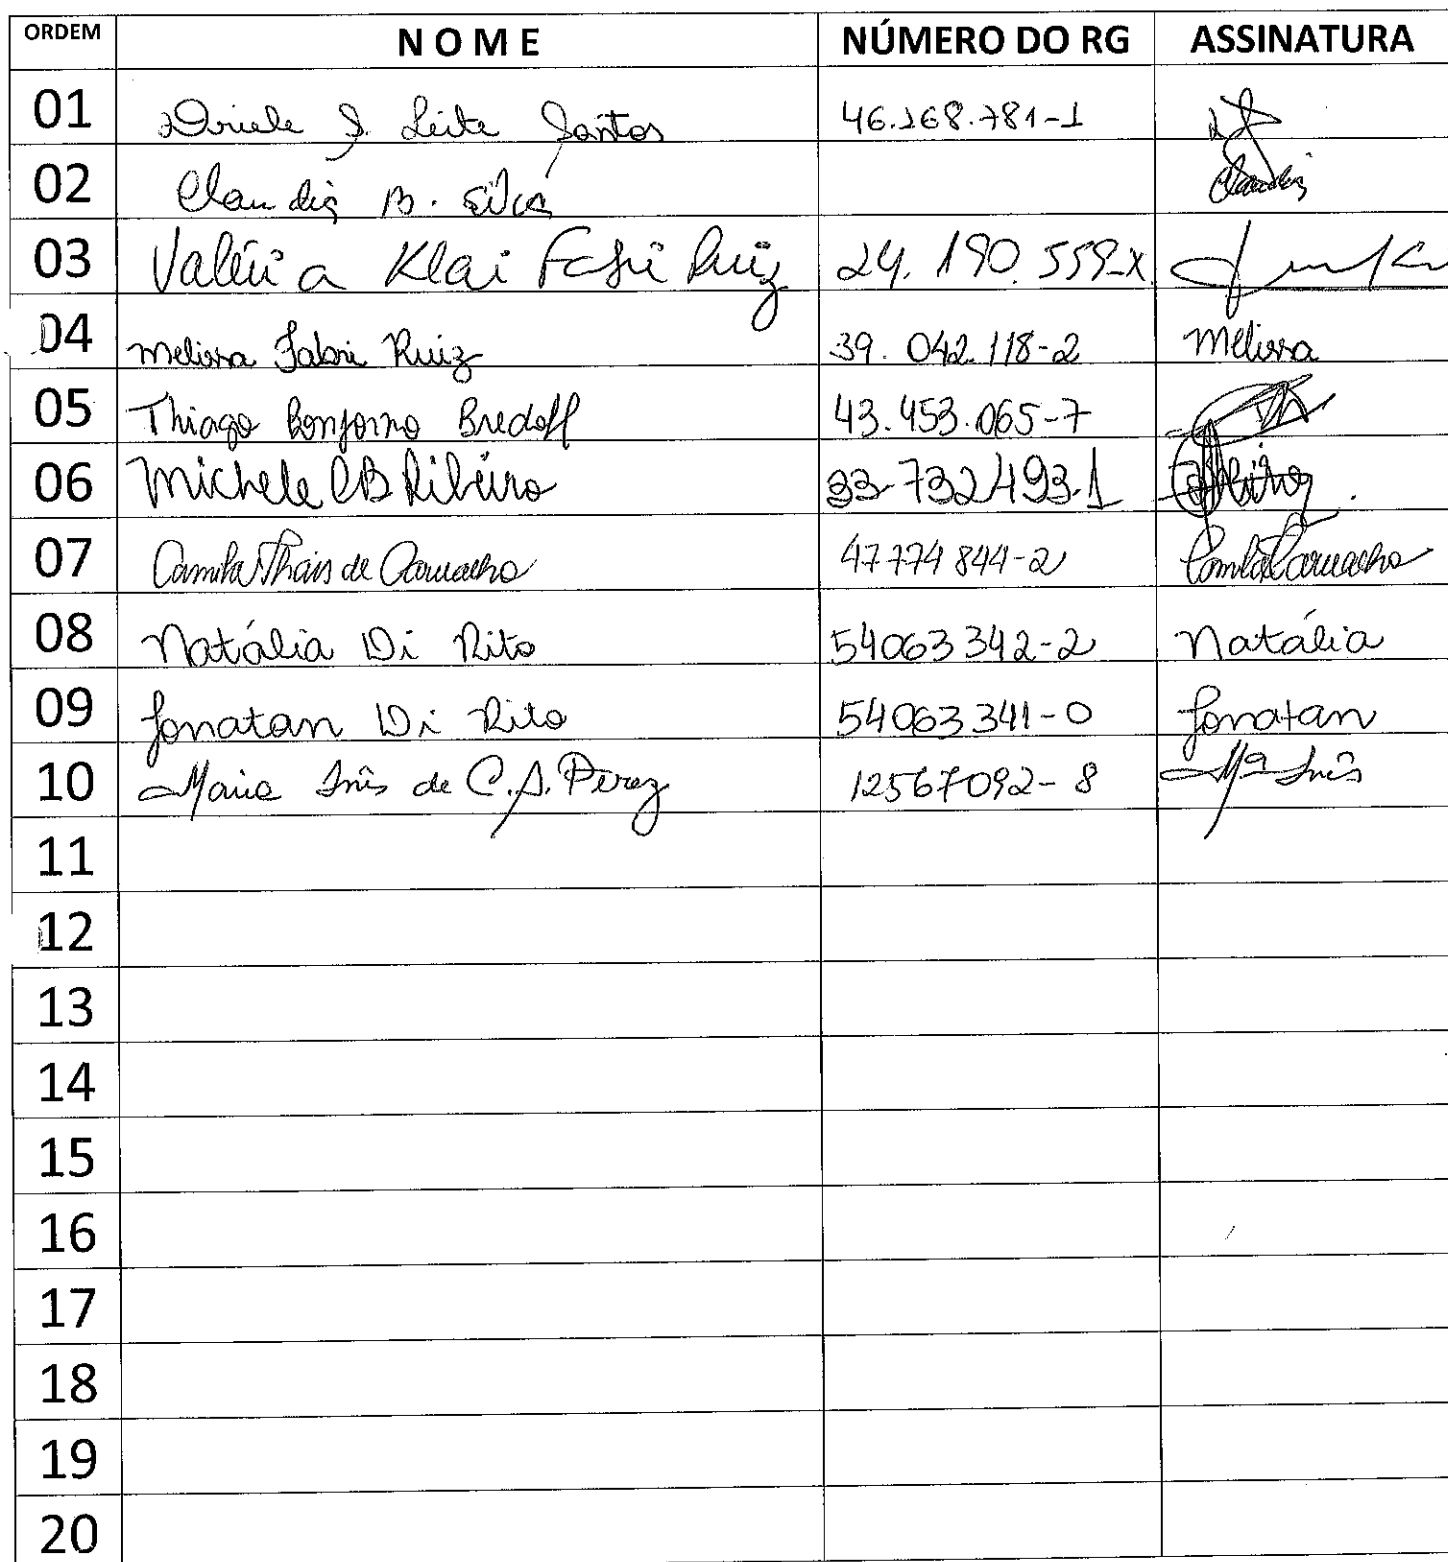 ORDEM NOME NÚMERO DO RG ASSINATURA
01 Driele J. Leite Santos 46.268.781-1
02 Claudia B. Silva Claudia
03 Valéria Klai Fabri Ruiz 24.190.559-X
04 Melissa Fabri Ruiz 39.042.118-2 Melissa
05 Thiago Bonforno Bredoff 43.453.065-7
06 Michele CB Ribeiro 33-732493-1
07 Camila Thais de Carvalho 47774844-2 Camila Carvalho
08 Natália Di Rito 54063342-2 Natália
09 Jonatan Di Rito 54063341-0 Jonatan
10 Maria Inês de C.A. Perez 12567092-8 Mª Inês
11
12
13
14
15
16
17
18
19
20